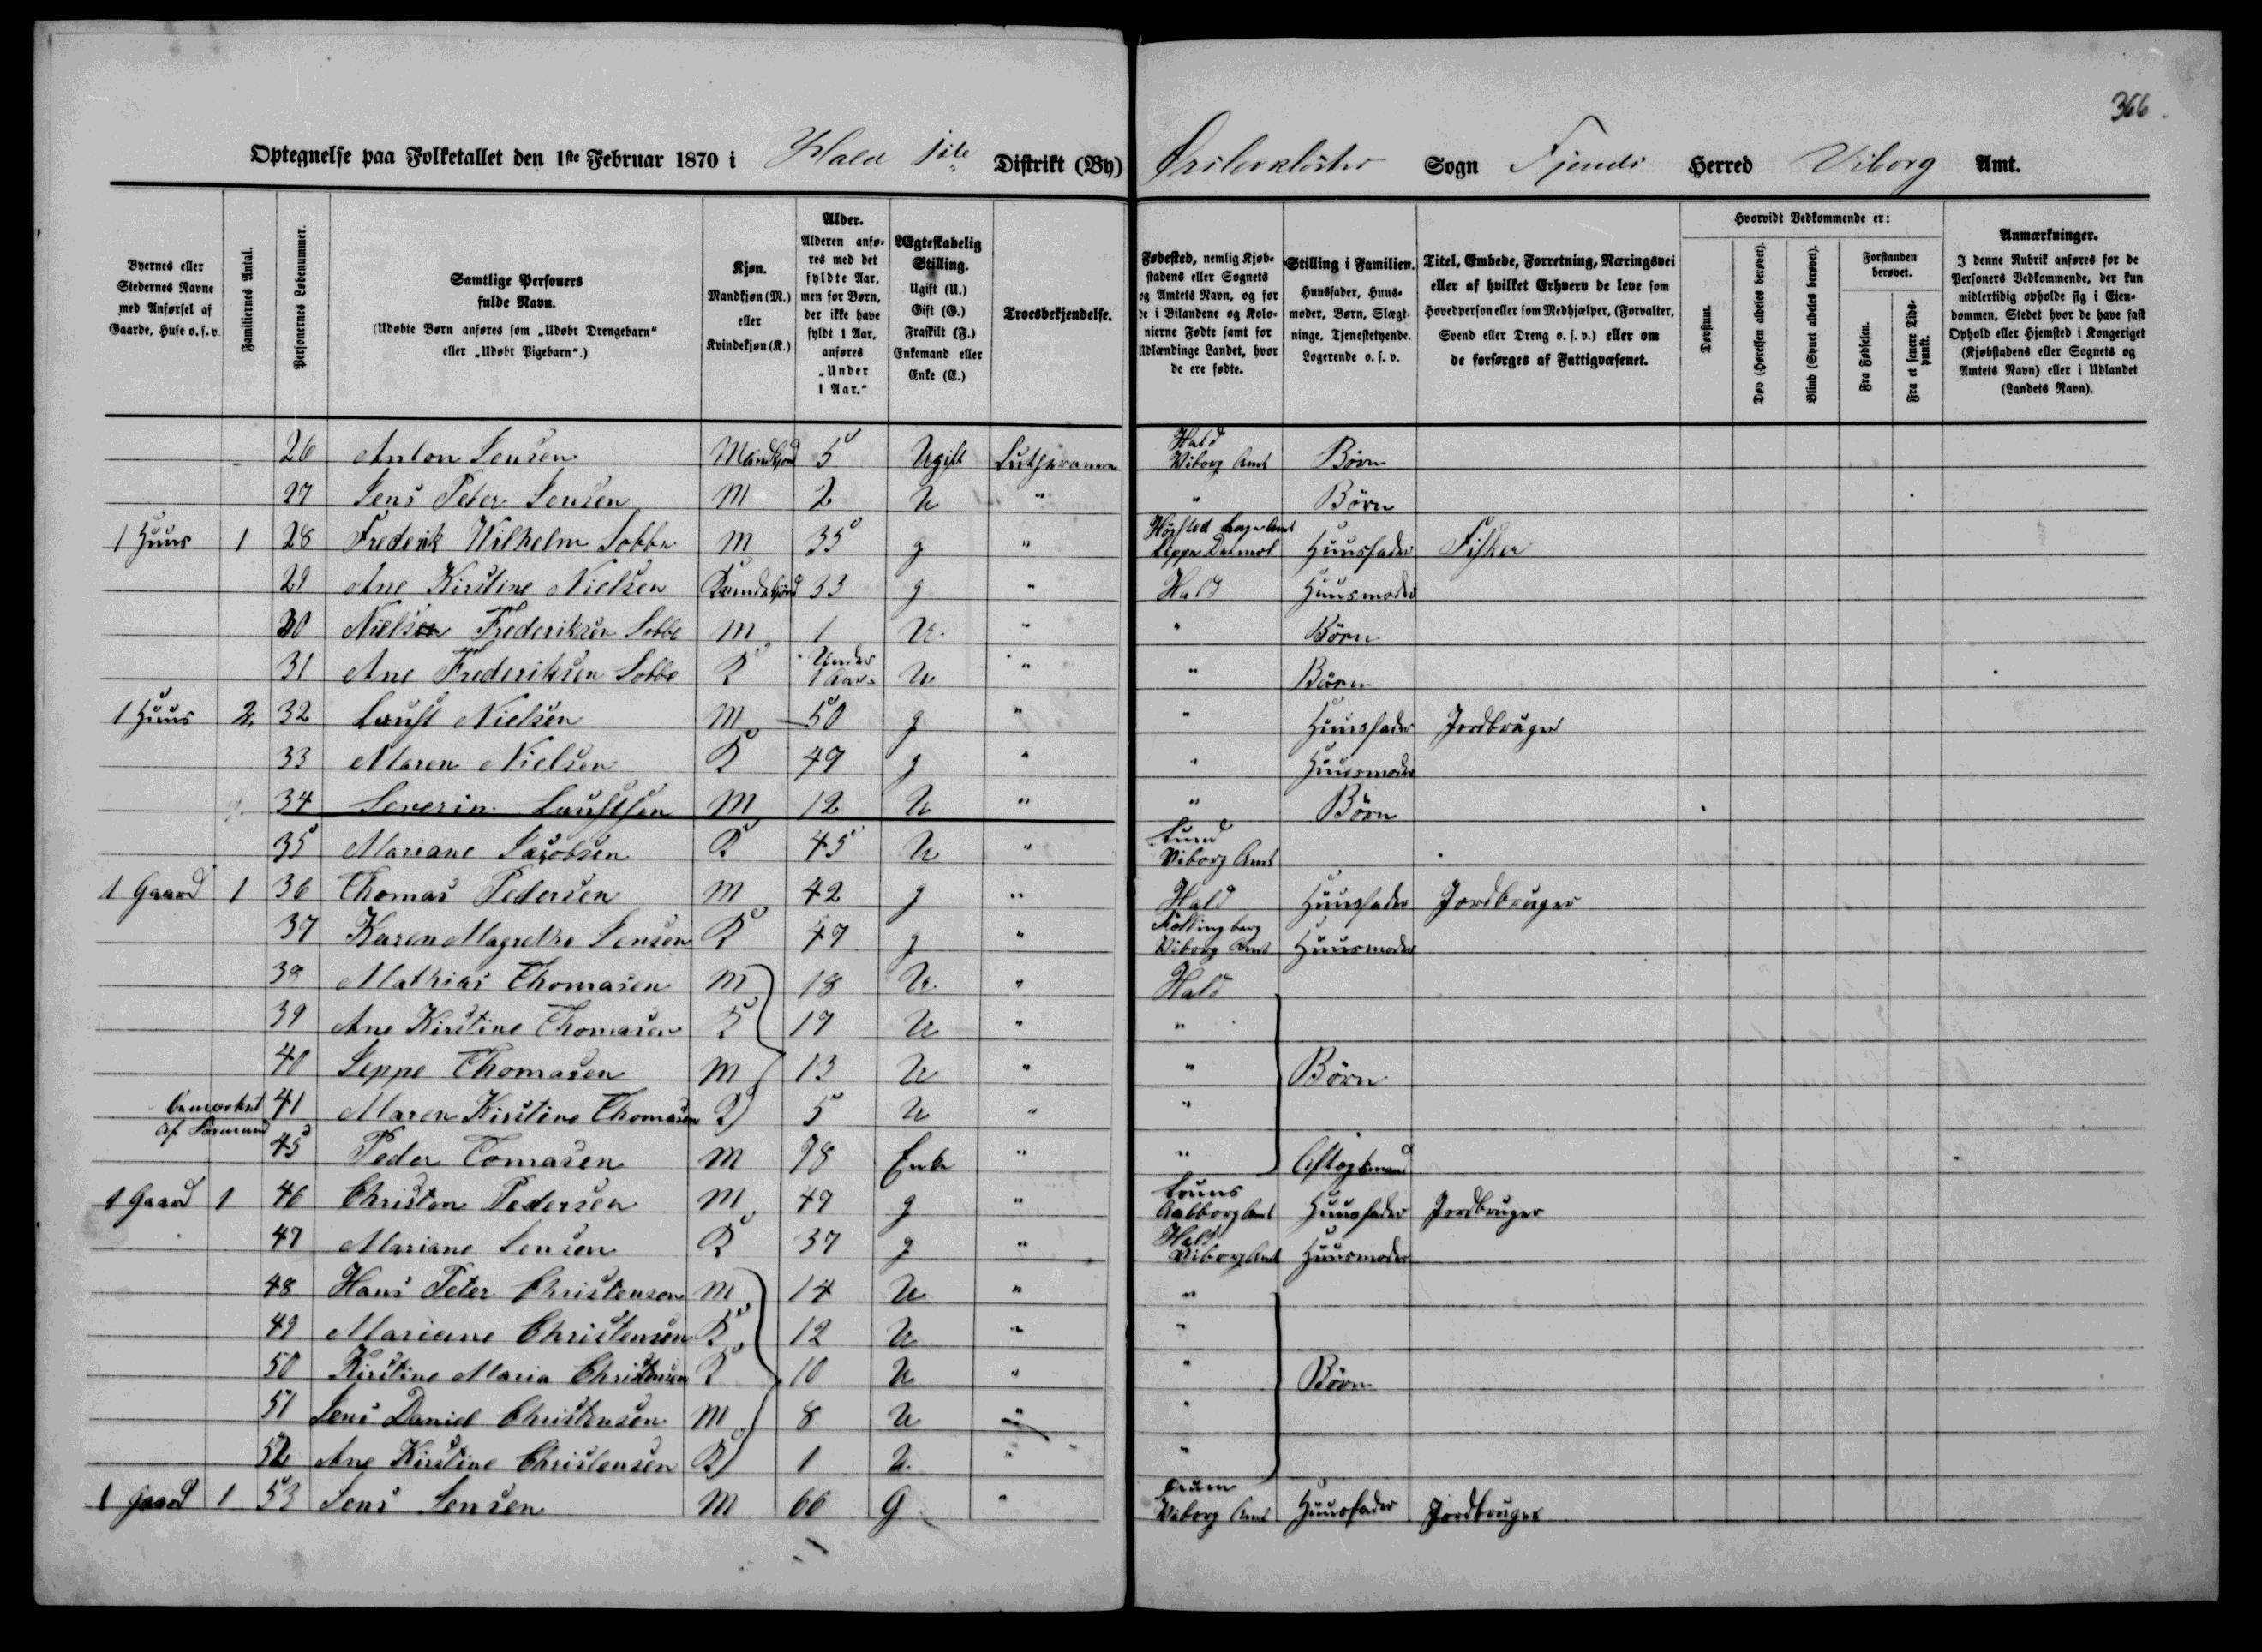 366
Optegnelse paa Folketallet den 1ste Februar 1870 i Hald 1ste Distrikt (By) Ørslevkloster Sogn Fjends Herred Viborg Amt.
Byernes eller Stedernes Navne med Anførsel af Gaarde, Huse o. s. v.
Familiernes Antal.
Personernes Løbenummer.
Samtlige Personers fulde Navn.
(Udøbte Børn anføres som „Udøbt Drengebarn“ eller „Udøbt Pigebarn“.)
Kjøn. Mandkjøn (M.) eller Kvindekjøn (K.)
Alder. Alderen anføres med det fyldte Aar, men for Børn, der ikke have fyldt 1 Aar, anføres „Under 1 Aar.“
Ægteskabelig Stilling. Ugift (U.) Gift (G.) Fraskilt (F.) Enkemand eller Enke (E.)
Troesbekjendelse.
Fødested, nemlig Kjøbstadens eller Sognets og Amtets Navn, og for de i Bilandene og Kolonierne Fødte samt for Udlændinge Landet, hvor de ere fødte.
Stilling i Familien. Huusfader, Huusmoder, Børn, Slægtninge, Tjenestetyende, Logerende o. s. v.
Titel, Embede, Forretning, Næringsvei eller af hvilket Erhverv de leve som Hovedperson eller som Medhjælper, (Forvalter, Svend eller Dreng o. s. v.) eller om de forsørges af Fattigvæsenet.
Hvorvidt Vedkommende er:
Døvstum.
Døv (Hørelsen aldeles berøvet).
Blind (Synet aldeles berøvet).
Forstanden berøvet.
Fra Fødselen.
Fra et senere Tidspunkt.
Anmærkninger. I denne Rubrik anføres for de Personers Vedkommende, der kun midlertidig opholde sig i Eiendommen, Stedet hvor de have fast Ophold eller Hjemsted i Kongeriget (Kjøbstadens eller Sognets og Amtets Navn) eller i Udlandet (Landets Navn).
26 Anton Jensen Mandkjøn 5 Ugift Lutheranere Hald Viborg Amt Børn
27 Jens Peter Jensen M 2 U " " Børn
1 Huus 1 28 Frederik Wilhelm Lobbe M 35 g " Lippe Detmol Huusfader Fisker
29 Ane Kirstine Nielsen Kvindekjøn 33 g " Hald Huusmoder
30 Nielsen Frederiksen Lobbe M 1 U. " " Børn
31 Ane Frederiksen Lobbe K Under 1 Aar. U " " Børn
1 Huus 2. 32 Laust Nielsen M 50 g " " Huusfader Jordbruger
33 Maren Nielsen K 49 g " " Huusmoder
34 Severin Laustsen M 12 U " " Børn
35 Mariane Jacobsen K 45 U " Lund Viborg Amt
1 Gaard 1 36 Thomas Pedersen M 42 g " Hald Huusfader Jordbruger
37 Karen Magrethe Jensen K 47 g " Viborg Amt Huusmoder
38 Mathias Thomasen M 18 U. " Hald
39 Ane Kirstine Thomasen K 17 U " "
40 Jeppe Thomasen M 13 U " " Børn
bemærket af 41 Maren Kirstine Thomasen K 5 U " "
45 Peder Tomasen M 78 Enke " " Aftægtsmand
1 Gaard 1 46 Christen Pedersen M 49 g " Louns Aalborg Amt Huusfader Jordbruger
47 Mariane Jensen K 37 g " Hald Viborg Amt Huusmoder
48 Hans Peter Christensen M 14 U " "
49 Mariane Christensen K 12 U " "
50 Kirstine Maria Christensen K 10 U " " Børn
51 Jens Daniel Christensen M 8 U " "
52 Ane Kirstine Christensen K 1 U. " "
1 Gaard 1 53 Jens Jensen M 66 G " Viborg Amt Huusfader Jordbruger